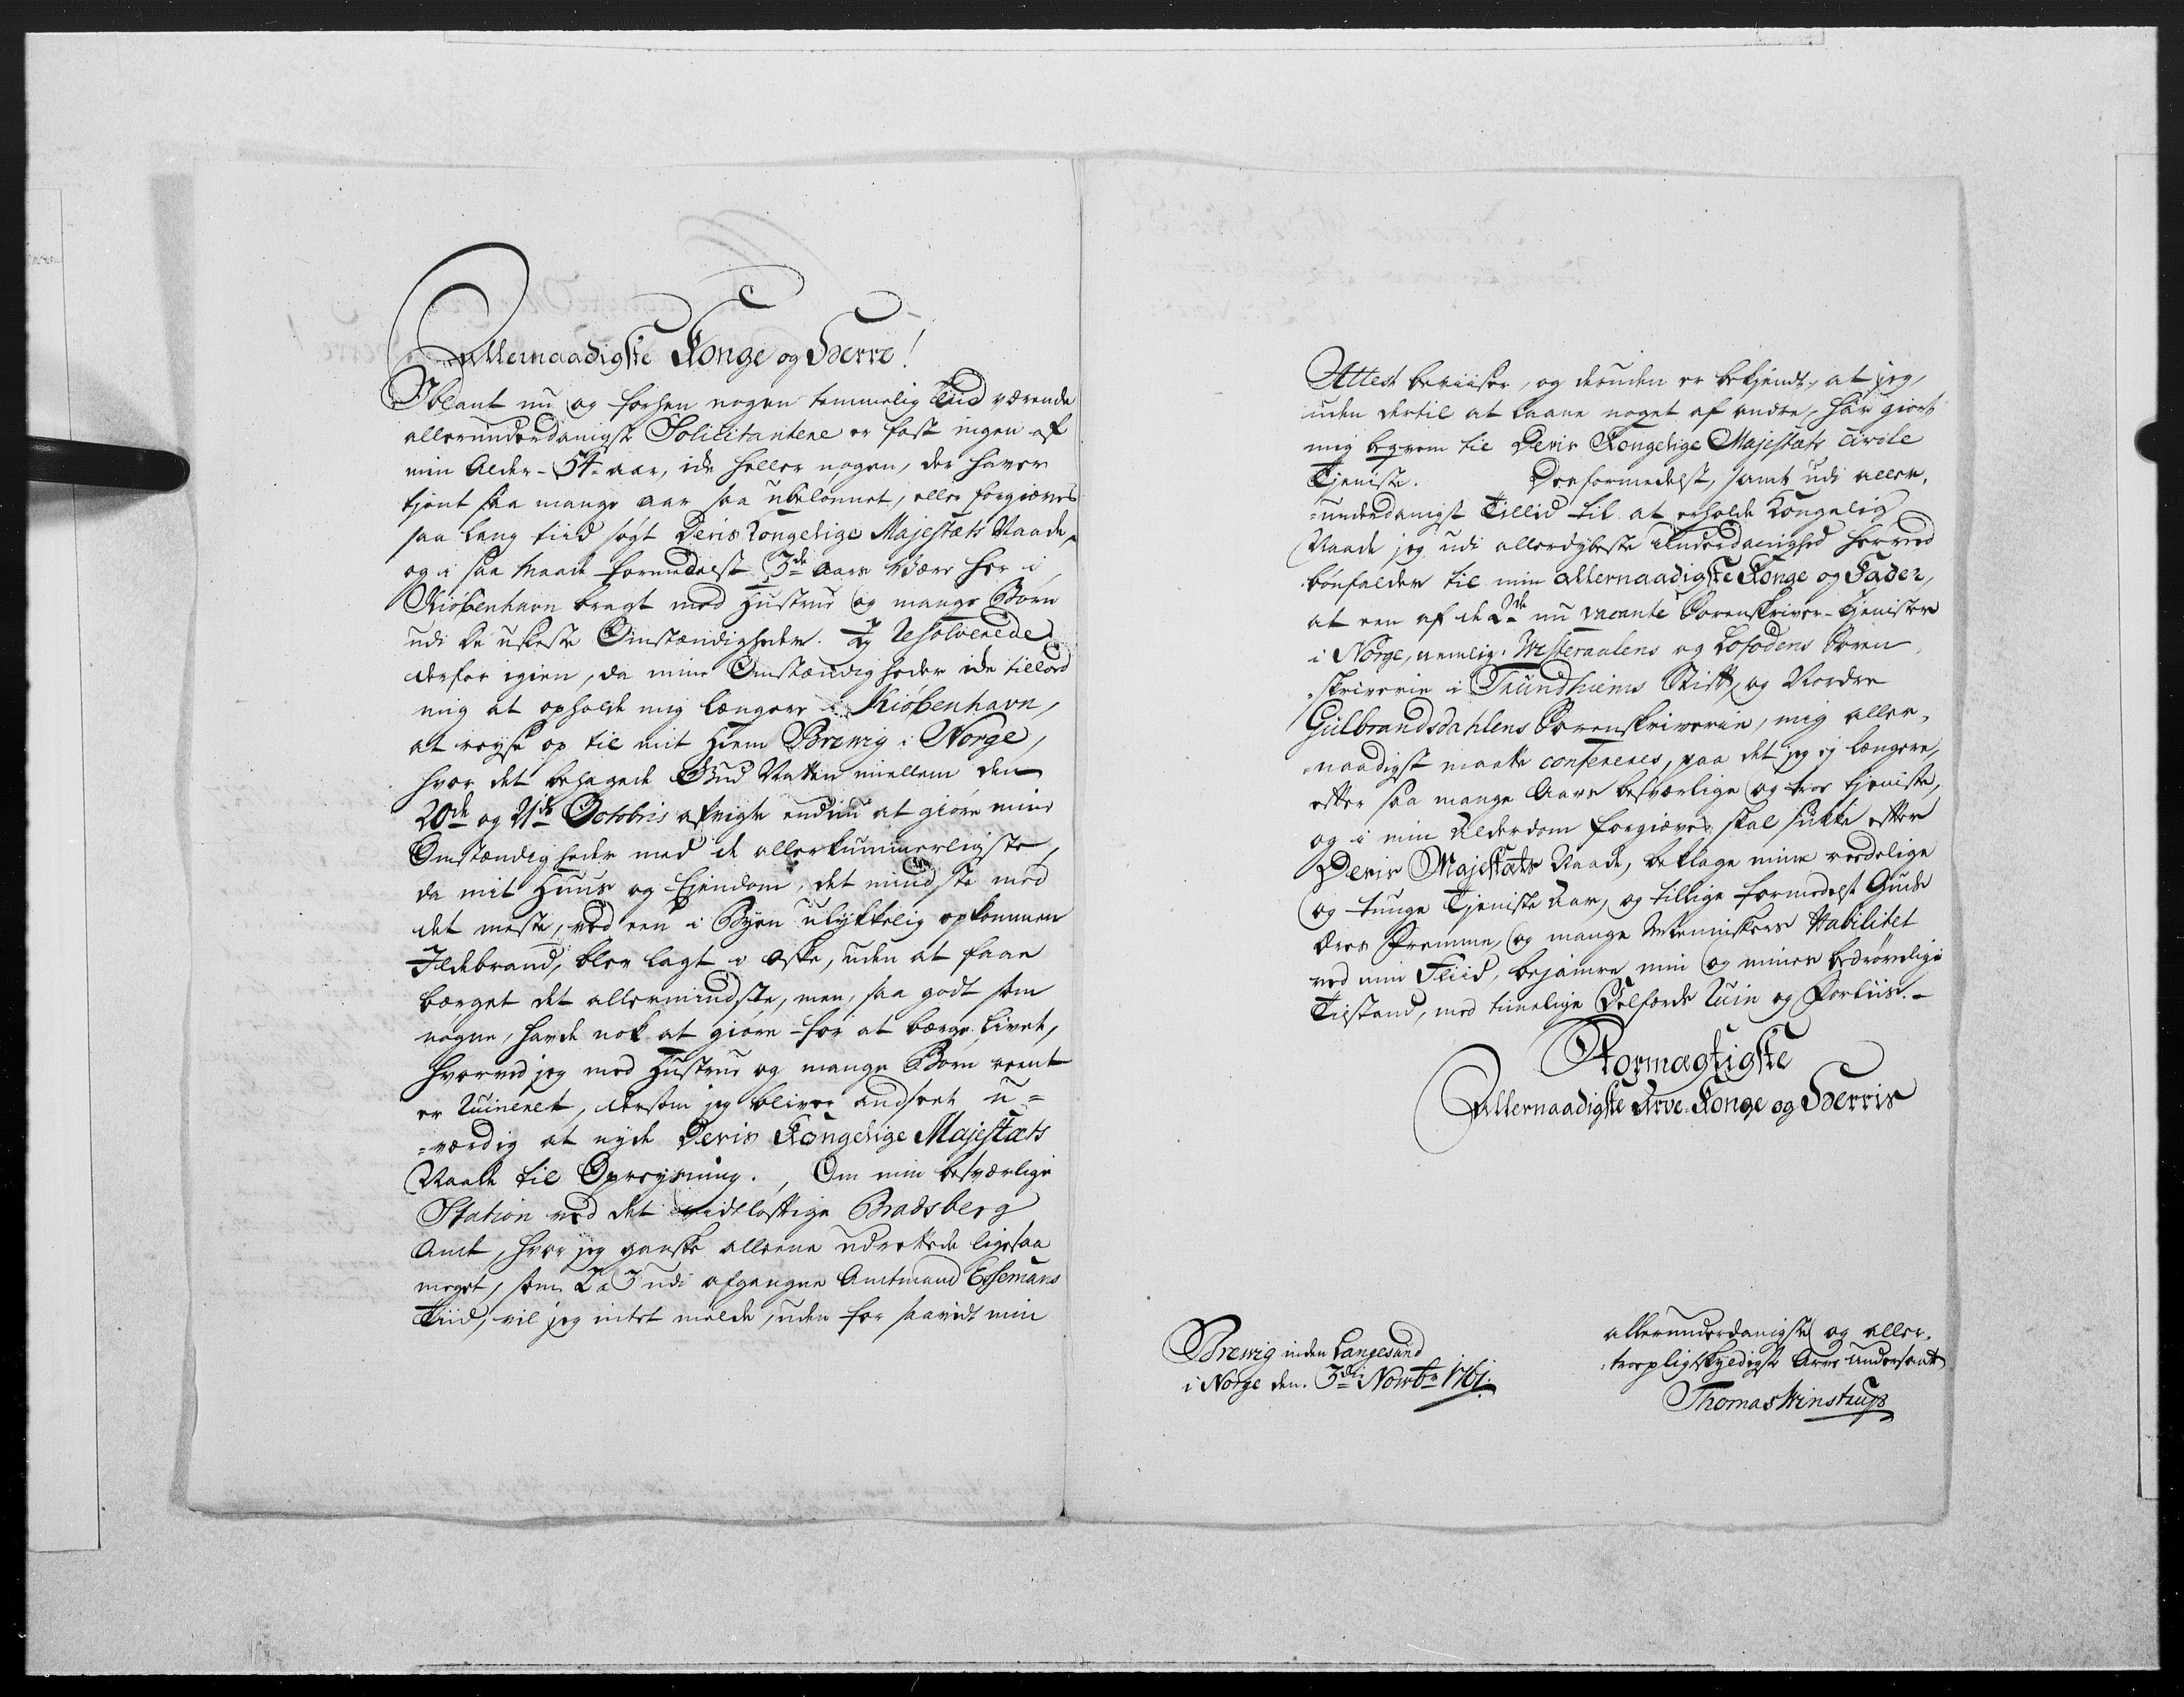 Allernaadigste Konge og Herre!
Iblant nu og forhen nogen temmelig Tiid værende
allerunderdanigste Solicitantene er fast ingen af
min Alder - 54 aar, ide heller nogen, der haver
tjent saa mange aar saa ubelønnet, eller forgiæves
saa lang tiid søgt Deris Kongelige Majestæts Naade,
og i saa maade formedelst 3de Aars Være her i
Kiøbenhavn bragt med Hustrue og mange Børn
udi de usleste Omstændigheder. Jeg Resolverede
derfor igien, da mine Omstændigheder ide tillod
mig at opholde mig længere i Kiøbenhavn,
at reyse op til mit Hiem Brewig i Norge,
hvor det behagede Gud Natten miellem den
20de og 21de Octobris afvigte endnu at giøre mine
Omstændigheder med de allerkummerligste,
da mit Huus og Eyendom, det mindste med
det meste, ved een i Byen ulykkelig opkommen
Ildebrand, blev lagt i Aske, uden at faae
bærget det allermindste, men, saa godt som
nogen, havde nok at giøre for at bærge Livet,
hvorved jeg med Hustrue og mange Børn reent
er Ruineret, dersom jeg bliver andseet u-
værdig at nyde Deris Kongelige Majestæts
Naade til Opreysning. Om min besværlige
Station ved det vidtløftige Bradsberg
Amt, hvor jeg ganske alleene udrettede ligesaa
meget, som 2 a 3 udi afgangne Amtmand Essemans
Tiid, vil jeg intet melde, uden for saavidt min
Attest beviiser, og desuden er bekjendt, at jeg,
uden dertil at laane noget af andre, har giort
mig beqvem til Deris Kongelige Majestæts Civile
Tjeniste. Derformedelst, samt udi aller-
underdanigst Tillid til at erholde Kongelig
Naade jeg udi allerdybeste Underdanighed herved
bønfalder til min allernaadigste Konge og Fader,
at een af de 2de nu vacante Sorenskriver-Tjenister
i Norge, nemlig: Westeraalens og Lofodens Soren-
skriverie i Trundhiems Stift, og Nordre
Gulbrandsdahlens Sorenskriverie, mig aller-
naadigst maatte confereres, paa det jeg ej længere,
efter saa mange Aars besværlige og troe tjeniste,
og i min Alderdom forgiæves skal sukke efter
Deris Majestæts Naade, beklage mine verdslige
og tunge Tjeniste Aar, og tillige formedelst Guds
Æres Fremme, og mange Menniskers Habilitet
ved min Fliid, bejamre min og mines bedrøvelige
Tilstand, med timelige Velfærds Ruin og Forliis.
Stormægtigste
Allernaadigste Arve-Konge og Herris
Brewig inden Langesund
i Norge den 3de Novbr 1761.
allerunderdanigste og aller-
troepligtskyldigste Arve Undersaatt
Thomas Winstrup